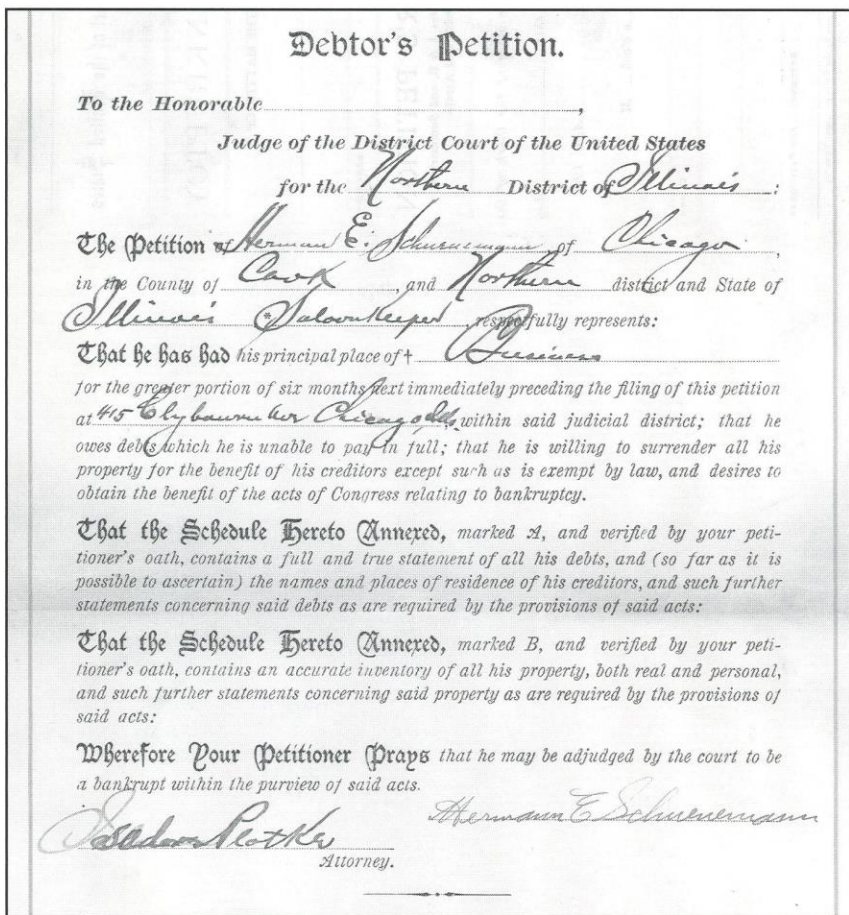 Debtor's Petition.
To the Honorable ,
Judge of the District Court of the United States
for the Northern District of Illinois :
The Petition of Herman E. Schuenemann of Chicago ,
in the County of Cook , and Northern district and State of
Illinois *Saloonkeeper respectfully represents:
That he has had his principal place of † Business
for the greater portion of six months next immediately preceding the filing of this petition
at 415 Clybourn Ave Chicago Ills. within said judicial district; that he
owes debts which he is unable to pay in full; that he is willing to surrender all his
property for the benefit of his creditors except such as is exempt by law, and desires to
obtain the benefit of the acts of Congress relating to bankruptcy.
That the Schedule Hereto Annexed, marked A, and verified by your peti-
tioner's oath, contains a full and true statement of all his debts, and (so far as it is
possible to ascertain) the names and places of residence of his creditors, and such further
statements concerning said debts as are required by the provisions of said acts:
That the Schedule Hereto Annexed, marked B, and verified by your peti-
tioner's oath, contains an accurate inventory of all his property, both real and personal,
and such further statements concerning said property as are required by the provisions of
said acts:
Wherefore Your Petitioner Prays that he may be adjudged by the court to be
a bankrupt within the purview of said acts.
Hermann E Schuenemann
Plotke
Attorney.